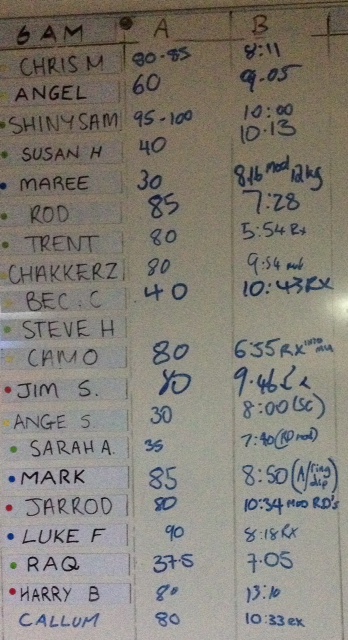 6AM A B
CHRIS M 80-85 8:11
ANGEL 60 9.05
SHINYSAM 95-100 10:00
10:13
SUSAN H 40
MAREE 30 8:16 mod 12kg
ROD 85 7:28
TRENT 80 5:54 Rx
CHAKKERZ 80 9:54
BEC. C 40 10:43 RX
STEVE H
CAMO 80 6:55 RX
JIM S. 80 9.46
ANGE S 30 8:00 (SC)
SARAH A. 35 7:40
MARK 85 8:50 (A/ring dip)
JARROD 80 10:34 MOD RD's
LUKE F 90 8:18 RX
RAQ 37.5 7.05
HARRY B 80 13:10
CALLUM 80 10:33 RX